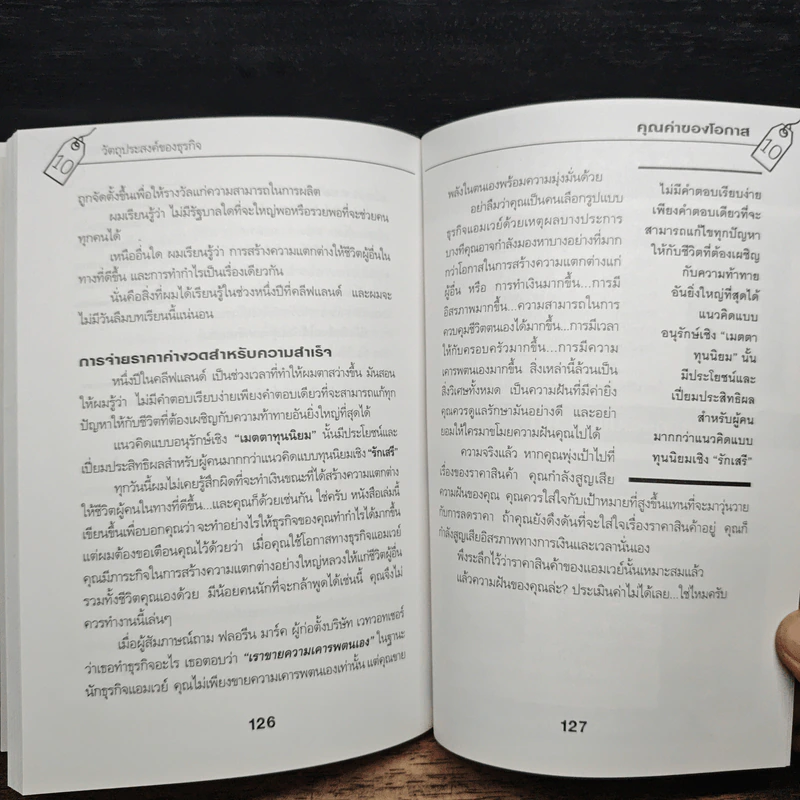 10
วัตถุประสงค์ของธุรกิจ
ถูกจัดตั้งขึ้นเพื่อให้รางวัลแก่ความสามารถในการผลิต
ผมเรียนรู้ว่า ไม่มีรัฐบาลใดที่จะใหญ่พอหรือรวยพอที่จะช่วยคน
ทุกคนได้
เหนืออื่นใด ผมเรียนรู้ว่า การสร้างความแตกต่างให้ชีวิตผู้อื่นใน
ทางที่ดีขึ้น และการทำกำไรเป็นเรื่องเดียวกัน
นั่นคือสิ่งที่ผมได้เรียนรู้ในช่วงหนึ่งปีที่คลีฟแลนด์ และผมจะ
ไม่มีวันลืมบทเรียนนี้แน่นอน
การจ่ายราคาค่างวดสำหรับความสำเร็จ
หนึ่งปีในคลีฟแลนด์ เป็นช่วงเวลาที่ทำให้ผมตาสว่างขึ้น มันสอน
ให้ผมรู้ว่า ไม่มีคำตอบเรียบง่ายเพียงคำตอบเดียวที่จะสามารถแก้ทุก
ปัญหาให้กับชีวิตที่ต้องเผชิญกับความท้าทายอันยิ่งใหญ่ที่สุดได้
แนวคิดแบบอนุรักษ์เชิง “เมตตาทุนนิยม” นั้นมีประโยชน์และ
เปี่ยมประสิทธิผลสำหรับผู้คนมากกว่าแนวคิดแบบทุนนิยมเชิง “รักเสรี”
ทุกวันนี้ผมไม่เคยรู้สึกผิดที่จะทำเงินขณะที่ได้สร้างความแตกต่าง
ให้ชีวิตผู้คนในทางที่ดีขึ้น...และคุณก็ด้วยเช่นกัน ใช่ครับ หนังสือเล่มนี้
เขียนขึ้นเพื่อบอกคุณว่า จะทำอย่างไรให้ธุรกิจของคุณทำกำไรได้มากขึ้น
แต่ผมต้องขอเตือนคุณไว้ด้วยว่า เมื่อคุณใช้โอกาสทางธุรกิจแอมเวย์
คุณมีภาระกิจในการสร้างความแตกต่างอย่างใหญ่หลวงให้แก่ชีวิตผู้อื่น
รวมทั้งชีวิตคุณเองด้วย มีน้อยคนนักที่จะกล้าพูดได้เช่นนี้ คุณจึงไม่
ควรทำงานนี้เล่นๆ
เมื่อผู้สัมภาษณ์ถาม ฟลอรีน มาร์ค ผู้ก่อตั้งบริษัท เวทวอทเชอร์
ว่าเธอทำธุรกิจอะไร เธอตอบว่า “เราขายความเคารพตนเอง” ในฐานะ
นักธุรกิจแอมเวย์ คุณไม่เพียงขายความเคารพตนเองเท่านั้น แต่คุณขาย
126
คุณค่าของโอกาส
10
พลังในตนเองพร้อมความมุ่งมั่นด้วย
อย่าลืมว่าคุณเป็นคนเลือกรูปแบบ
ธุรกิจแอมเวย์ด้วยเหตุผลบางประการ
บางทีคุณอาจกำลังมองหาบางอย่างที่มาก
กว่าโอกาสในการสร้างความแตกต่างแก่
ผู้อื่น หรือ การทำเงินมากขึ้น...การมี
อิสรภาพมากขึ้น...ความสามารถในการ
ควบคุมชีวิตตนเองได้มากขึ้น...การมีเวลา
ให้กับครอบครัวมากขึ้น...การมีความ
เคารพตนเองมากขึ้น สิ่งเหล่านี้ล้วนเป็น
สิ่งวิเศษทั้งหมด เป็นความฝันที่มีค่ายิ่ง
คุณควรดูแลรักษามันอย่างดี และอย่า
ยอมให้ใครมาขโมยความฝันคุณไปได้
ความจริงแล้ว หากคุณพุ่งเป้าไปที่
เรื่องของราคาสินค้า คุณกำลังสูญเสีย
ความฝันของคุณ คุณควรใส่ใจกับเป้าหมายที่สูงขึ้นแทนที่จะมาวุ่นวาย
กับการลดราคา ถ้าคุณยังดึงดันที่จะใส่ใจเรื่องราคาสินค้าอยู่ คุณก็
กำลังสูญเสียอิสรภาพทางการเงินและเวลานั่นเอง
พึงระลึกไว้ว่าราคาสินค้าของแอมเวย์นั้นเหมาะสมแล้ว
แล้วความฝันของคุณล่ะ? ประเมินค่าไม่ได้เลย...ใช่ไหมครับ
ไม่มีคำตอบเรียบง่าย
เพียงคำตอบเดียวที่จะ
สามารถแก้ไขทุกปัญหา
ให้กับชีวิตที่ต้องเผชิญ
กับความท้าทาย
อันยิ่งใหญ่ที่สุดได้
แนวคิดแบบ
อนุรักษ์เชิง “เมตตา
ทุนนิยม” นั้น
มีประโยชน์และ
เปี่ยมประสิทธิผล
สำหรับผู้คน
มากกว่าแนวคิดแบบ
ทุนนิยมเชิง “รักเสรี”
127